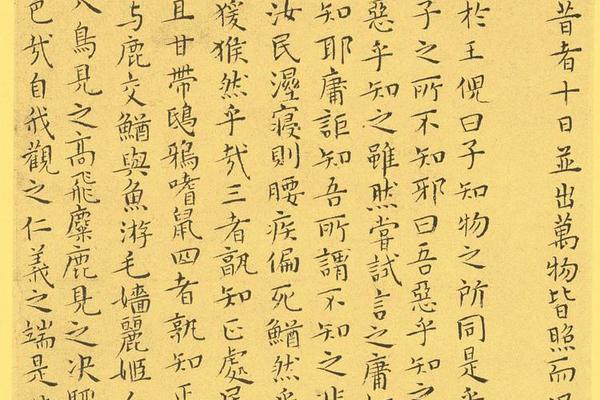 昔者十日並出萬物皆照而
於王倪曰子知物之所同是乎
子之所不知邪曰吾惡乎知之
惡乎知之雖然嘗試言之庸
知耶庸詎知吾所謂不知之非
汝民濕寢則腰疾偏死鰌然乎
猨猴然乎哉三者孰知正處民
且甘帶鴟鴉嗜鼠四者孰知正
与鹿交鰌與魚游毛嬙麗姬人
入鳥見之高飛麋鹿見之决驟
色哉自我觀之仁義之端是